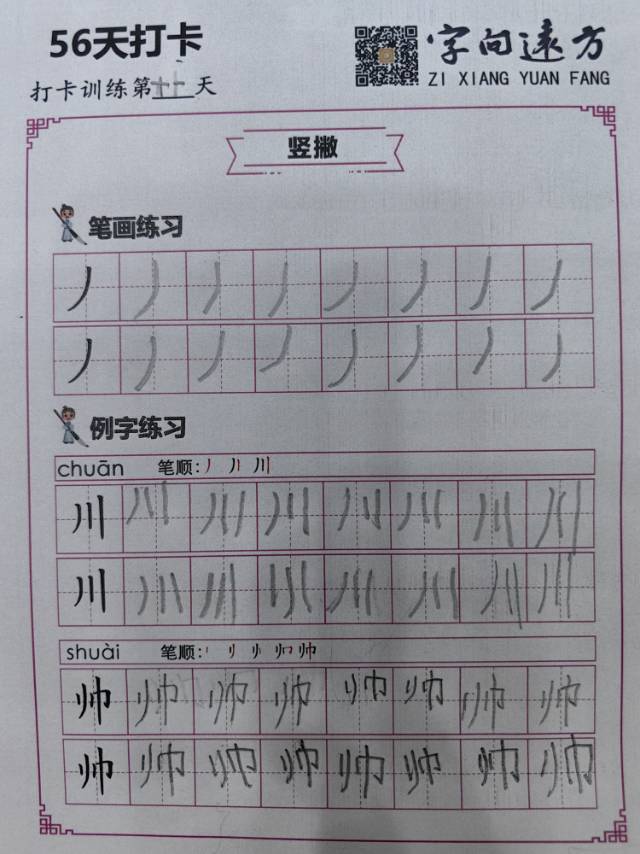 56天打卡
字向远方
ZI XIANG YUAN FANG
打卡训练第十十天
竖撇
笔画练习
丿丿丿丿丿丿丿丿
丿丿丿丿丿丿丿丿
例字练习
chuān 笔顺: 丿 丿丨 川
川川川川川川川川
川川川川川川川川
shuài 笔顺: 帅
帅帅帅帅帅帅帅帅
帅帅帅帅帅帅帅帅